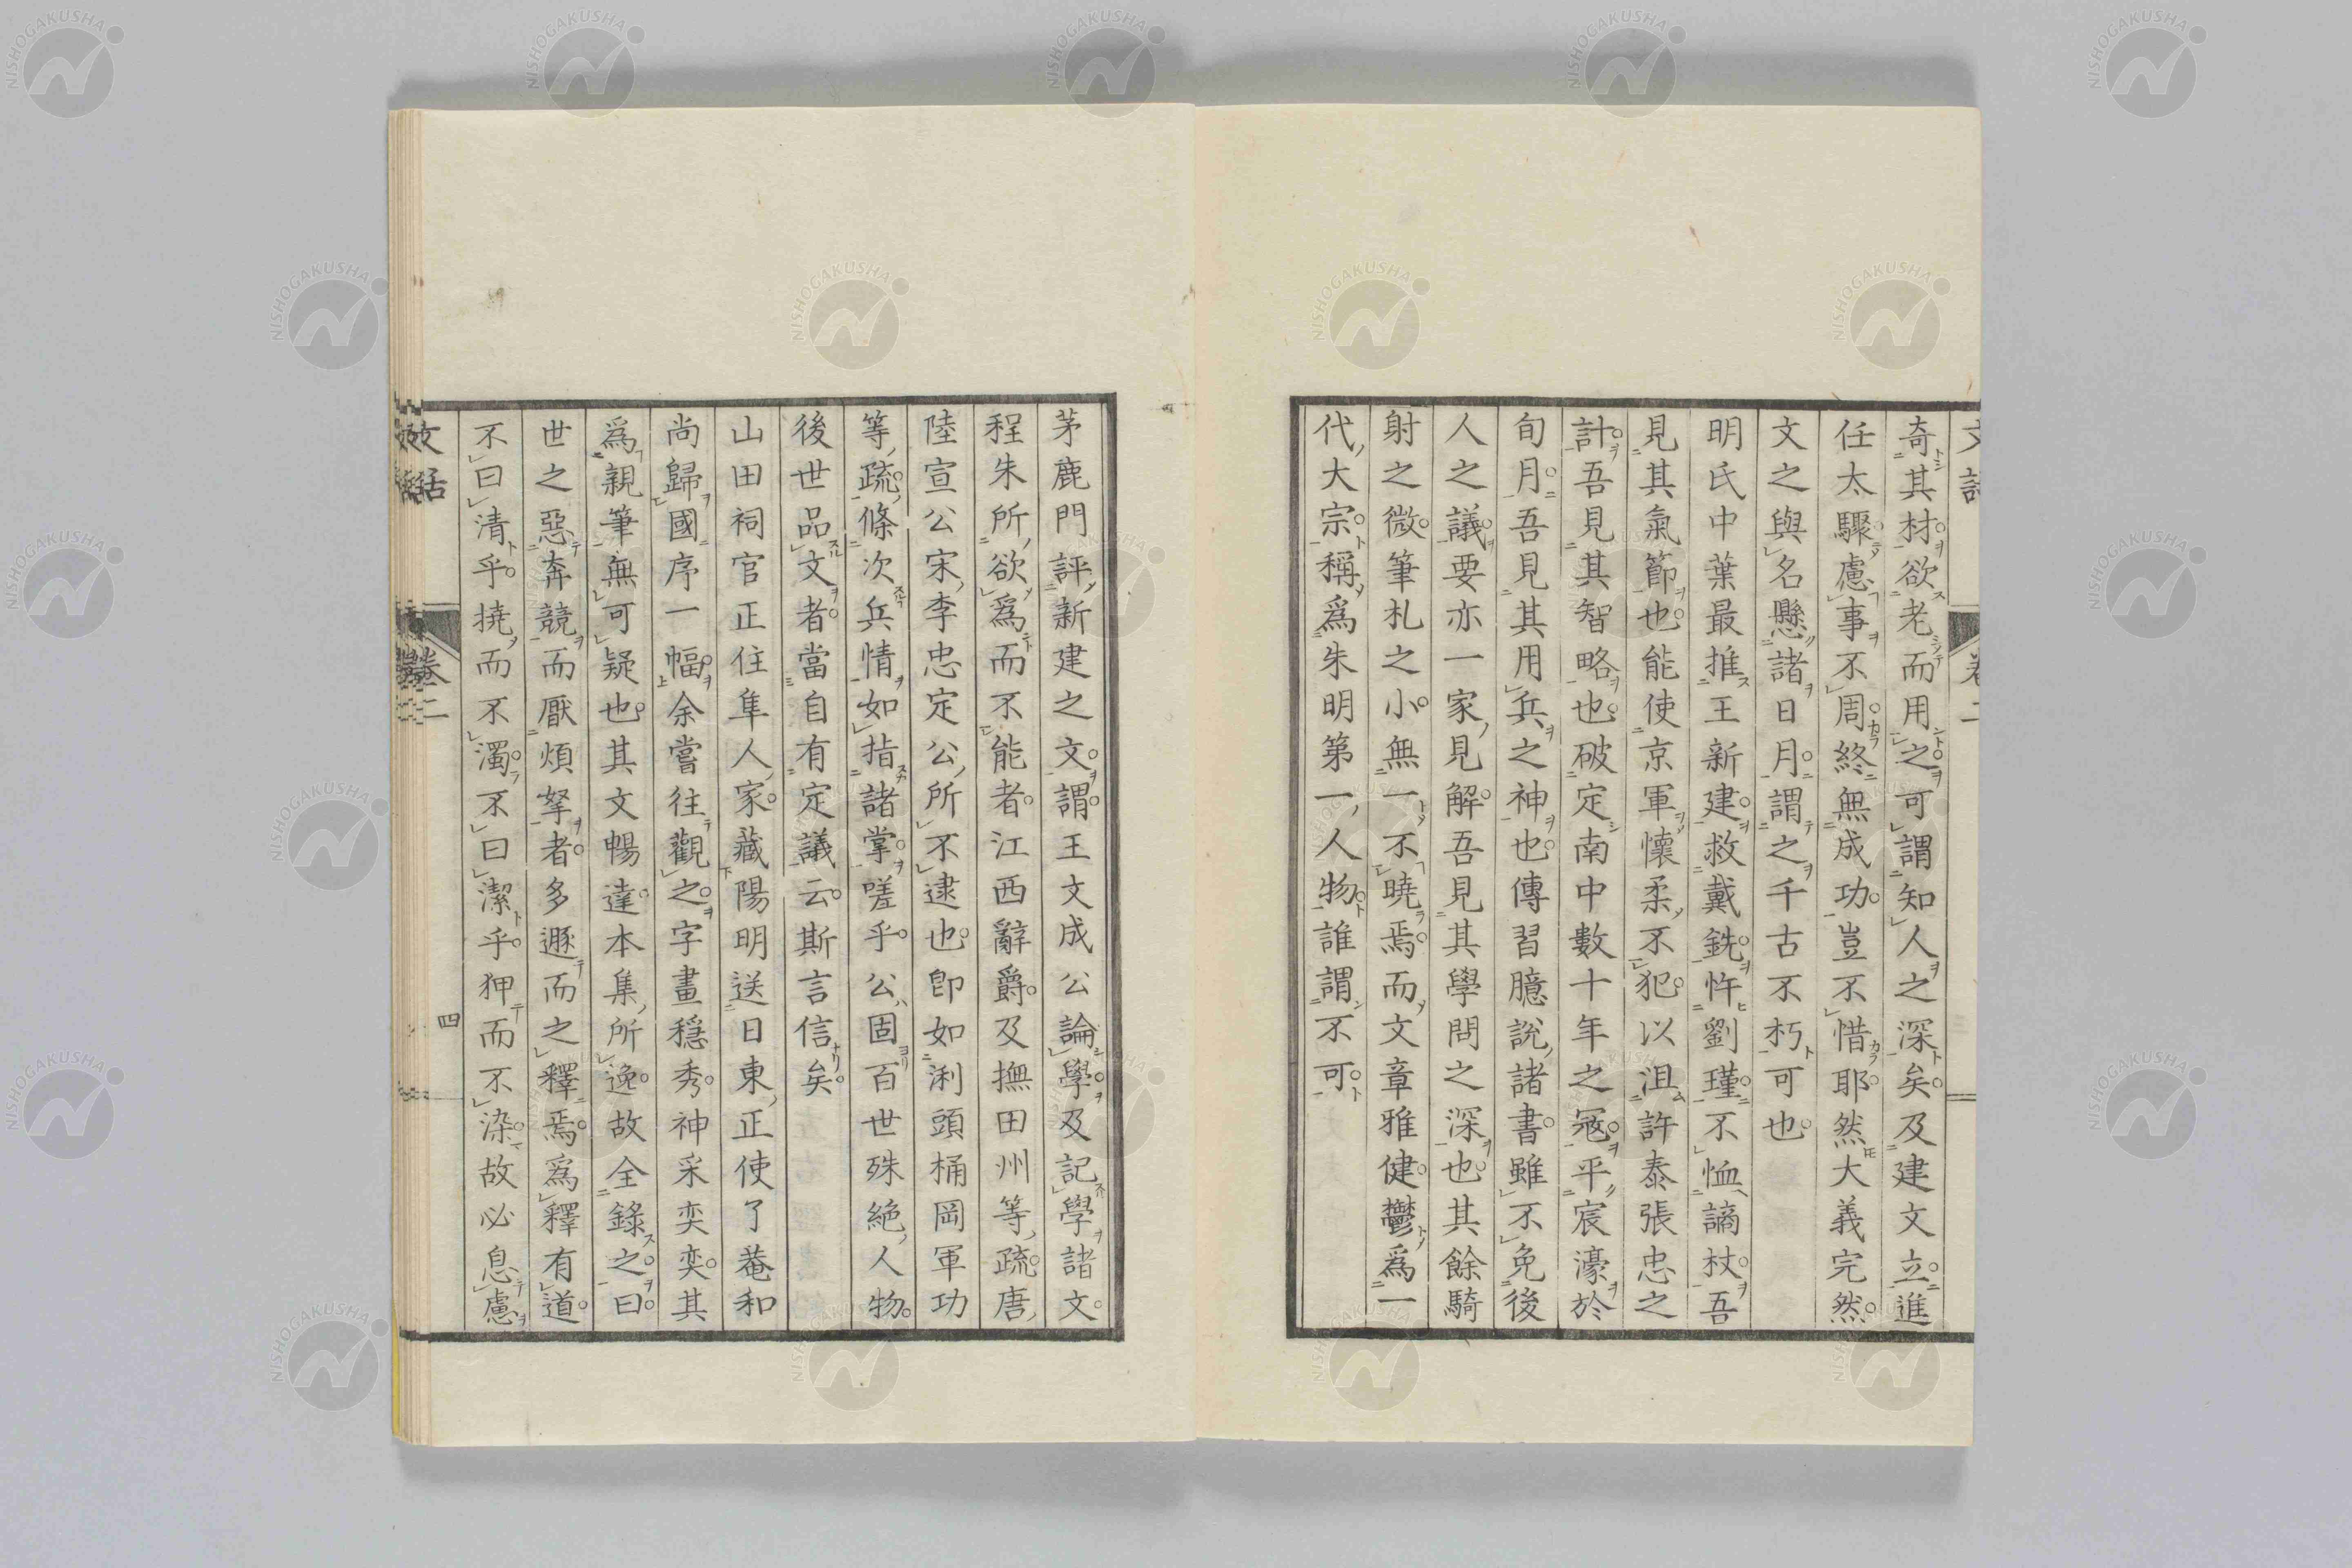 奇其材欲老而用之可謂知人之深矣及建文立進
任太驟慮事不周終無成功豈不惜耶然大義完然
文之與名懸諸日月謂之千古不朽可也
明氏中葉最推王新建救戴銑忤劉瑾不恤謫杖吾
見其氣節也能使京軍懷柔不犯以沮許泰張忠之
計吾見其智略也破定南中數十年之寇平宸濠於
旬月吾見其用兵之神也傳習臆說諸書雖不免後
人之議要亦一家見解吾見其學問之深也其餘騎
射之微筆札之小無一不曉焉而文章雅健鬱爲一
代大宗稱爲朱明第一人物誰謂不可
茅鹿門評新建之文謂王文成公論學及記學諸文
程朱所欲爲而不能者江西辭爵及撫田州等疏唐
陸宣公宋李忠定公所不逮也卽如浰頭桶岡軍功
等疏條次兵情如指諸掌嗟乎公固百世殊絶人物
後世品文者當自有定議云斯言信矣
山田祠官正住隼人家藏陽明送日東正使了菴和
尚歸國序一幅余嘗往觀之字畫穩秀神采奕奕其
爲親筆無可疑也其文暢達本集所逸故全錄之曰
世之惡奔競而厭煩拏者多遯而之釋焉爲釋有道
不曰清乎撓而不濁不曰潔乎狎而不染故必息慮
文話
卷二
四
NISHOGAKUSHA